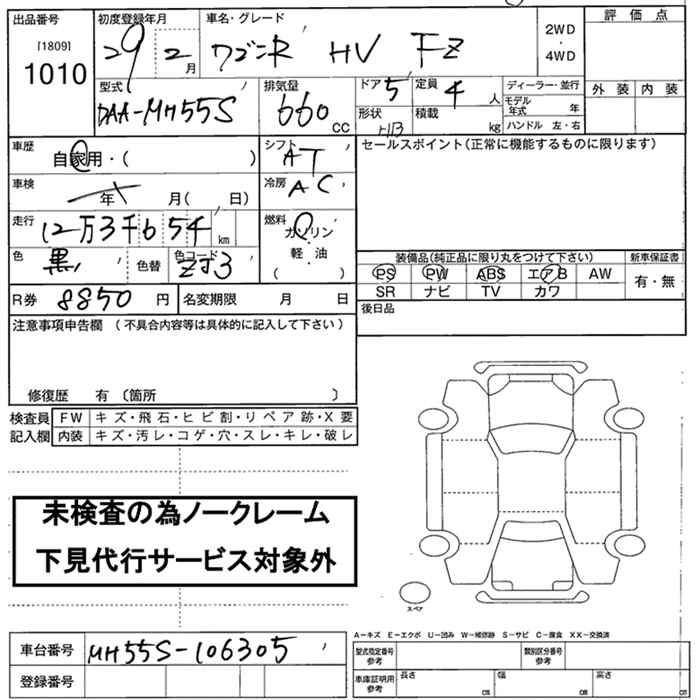 出品番号 初度登録年月 車名・グレード 2WD ・ 4WD 評価点
[1809] 1010 29年 2月 ワゴンR HV FZ
外装 内装
型式 DAA-MH55S 排気量 660 CC ドア 5 定員 4人 ディーラー・並行
形状 H/B 積載 kg モデル年式 年
ハンドル 左・右
車歴 自家用・( ) シフト AT セールスポイント(正常に機能するものに限ります)
車検 年 月( 日) 冷房 AC
走行 12万3千654 km 燃料 ガソリン
軽・油
( )
色 黒 色替 色コード ZJ3 装備品(純正品に限り丸をつけて下さい) 新車保証書
PS PW ABS エアB AW 有・無
SR ナビ TV カワ
R券 8850円 名変期限 月 日 後日品
注意事項申告欄 (不具合内容等は具体的に記入して下さい)
修復歴 有 〔箇所 〕
検査員 FW キズ・飛石・ヒビ割・リペア跡・X要
記入欄 内装 キズ・汚レ・コゲ・穴・スレ・キレ・破レ
未検査の為ノークレーム
下見代行サービス対象外
スペア
A−キズ E−エクボ U−凹み W−補修跡 S−サビ C−腐食 XX−交換済
車台番号 MH55S-106305 型式指定番号 参考 類別区分番号 参考
登録番号 車庫証明用 参考 長さ cm 幅 cm 高さ cm